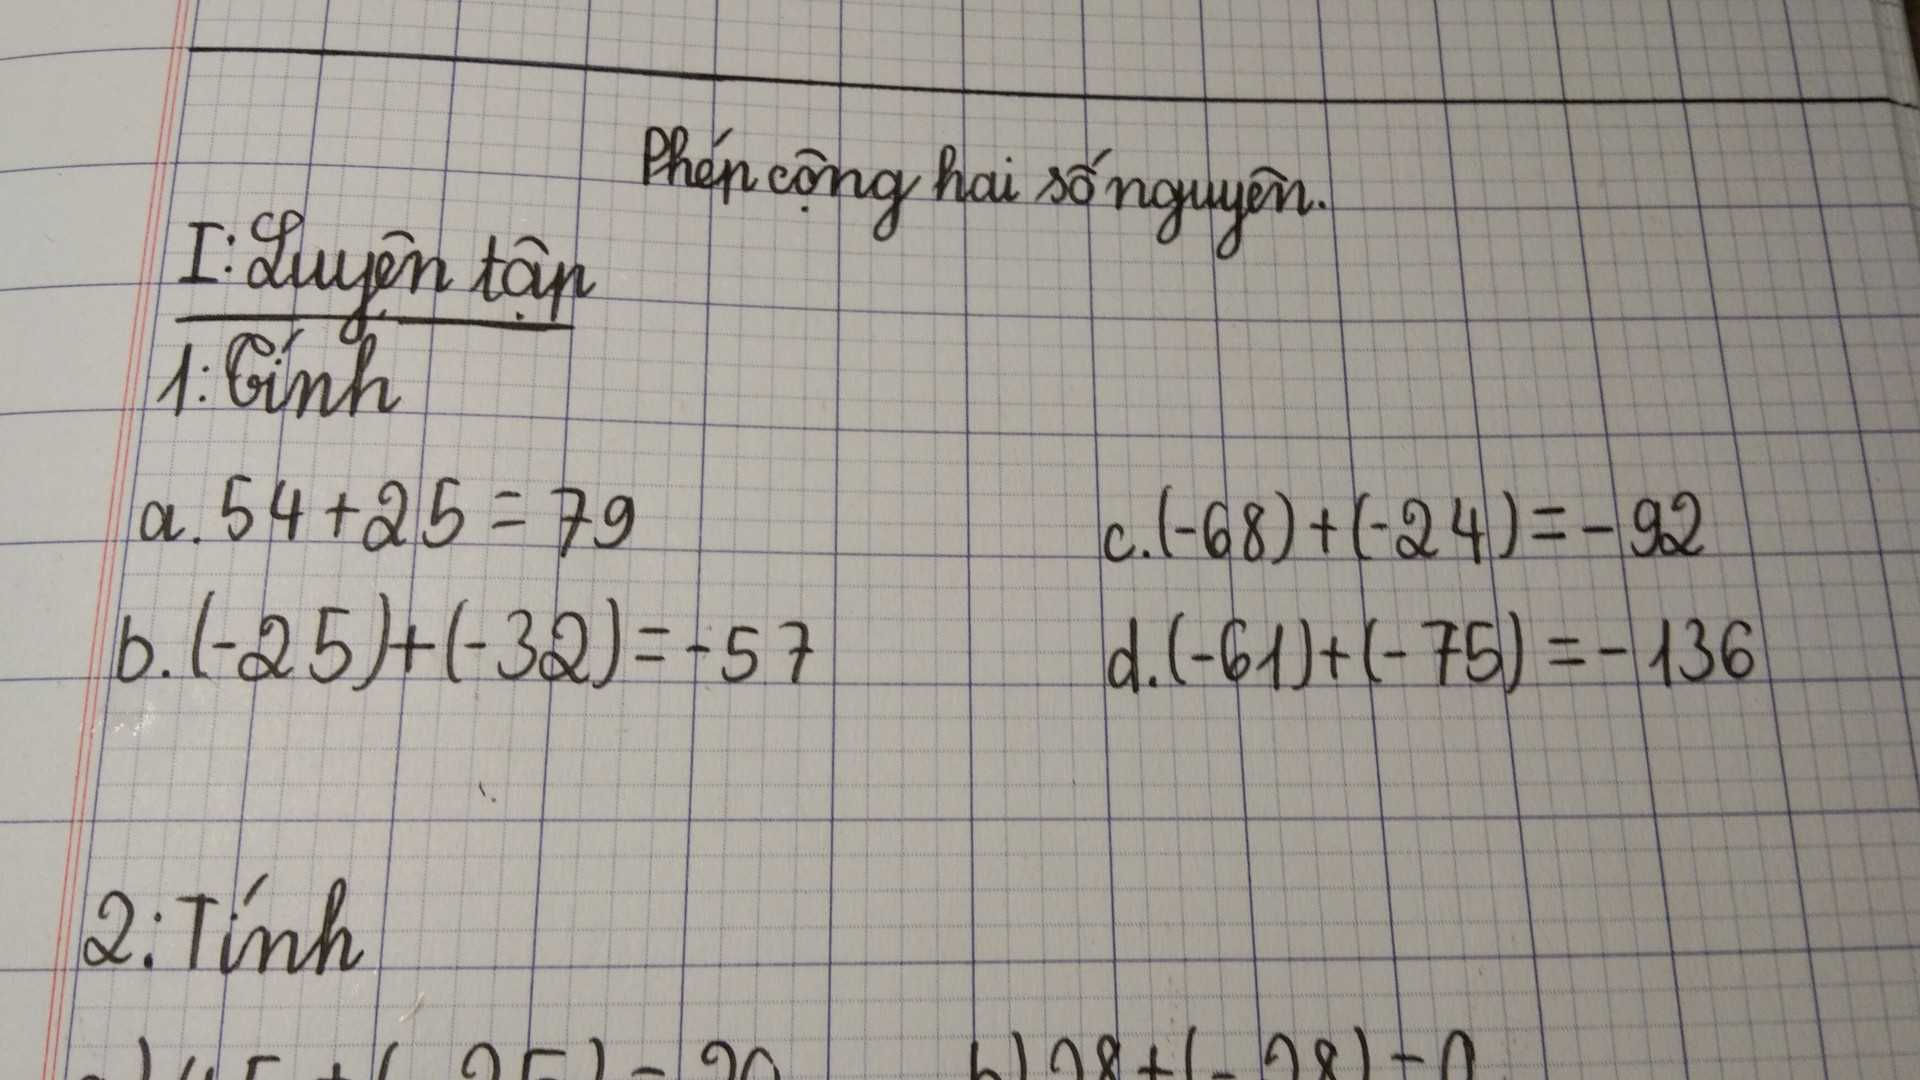 Phép cộng hai số nguyên.
I: Luyện tập
1: Tính
a. 54 + 25 = 79
c. (-68) + (-24) = - 92
b. (-25) + (-32) = -57
d. (-61) + (- 75) = - 136
2: Tính
b) 28 + (- 28) = 0